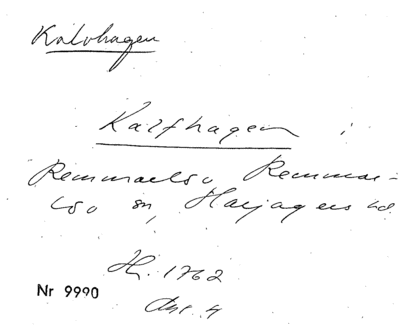 Kalvhagen
Kalfhagen i
Remmarlöv, Remmar-
löv sn, Harjagers hd
H. 1762
Nr 9990
Akt 4